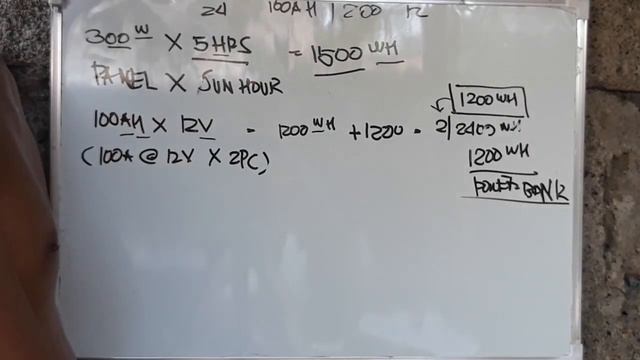 24 100AH 1200
300W X 5HRS = 1500WH
PANEL X SUN HOUR
100AH X 12V = 1200WH + 1200 = 2/2400
(100A @ 12V X 2PC)
1200WH
1200WH